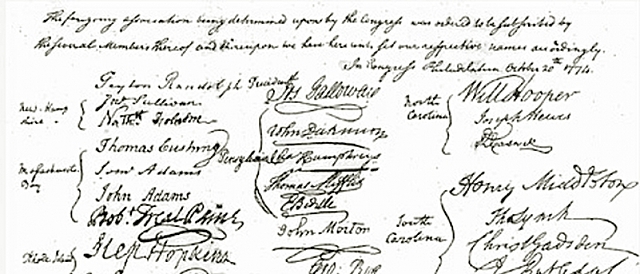 The foregoing association being determined upon by the Congress was ordered to be subscribed by
the several Members thereof and thereupon we have hereunto set our respective names accordingly.
In Congress Philadelphia October 20th 1774.
Peyton Randolph President
New Hampshire
Jno Sullivan
Nathl Folsom
Massachusetts Bay
Thomas Cushing
Saml Adams
John Adams
Robt Treat Paine
Rhode Island
Step Hopkins
Pensylvania
Jos Galloway
John Dickinson
Cha Humphreys
Thomas Mifflin
E Biddle
John Morton
Geo: Ross
North Carolina
Will Hooper
Joseph Hewes
R Caswell
South Carolina
Henry Middleton
Tho Lynch
Christ Gadsden
J Rutledge